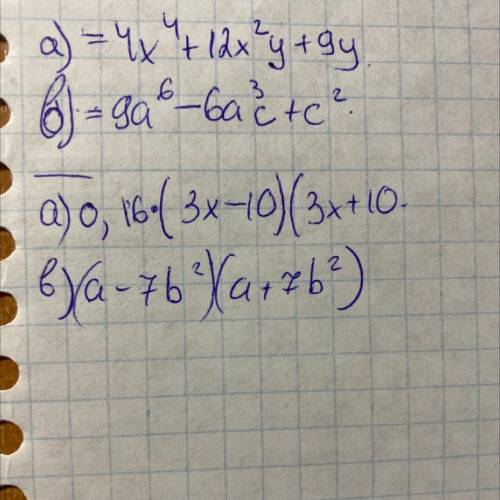 а) = 4x⁴ + 12x²y + 9y.
б) = 9a⁶ - 6a³c + c².
а) 0,16·(3x-10)(3x+10.
в) (a - 7b²)(a + 7b²)